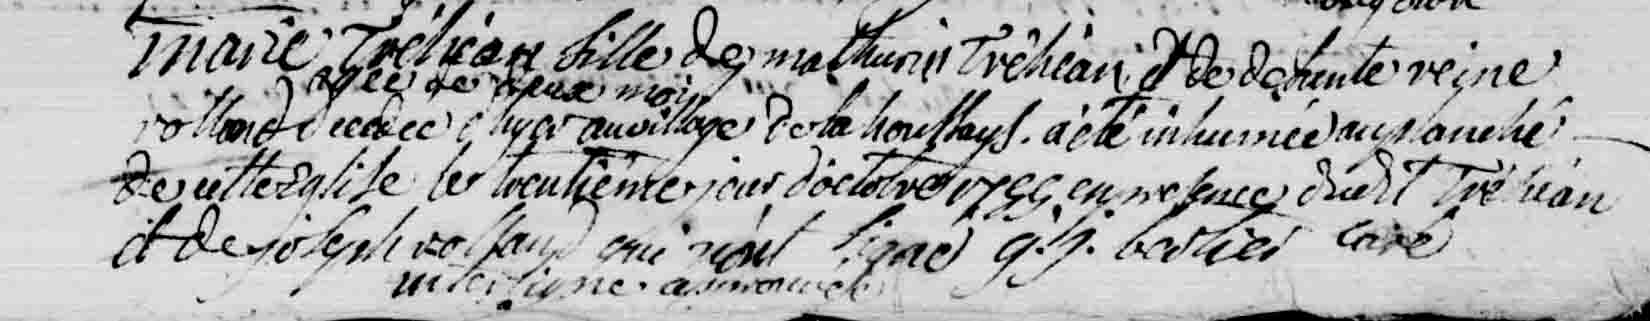 marie Tréhéan fille de mathurin Tréhéan et de defunte reine
agée de deux mois
rolland decedee d'hyer au village de la houssays. a été inhumée au planché
de cette eglise le trentième jour d'octobre en presence dudt Tréhéan
et de joseph rolland qui n'ont signé g. j. curé
interligne approuvée